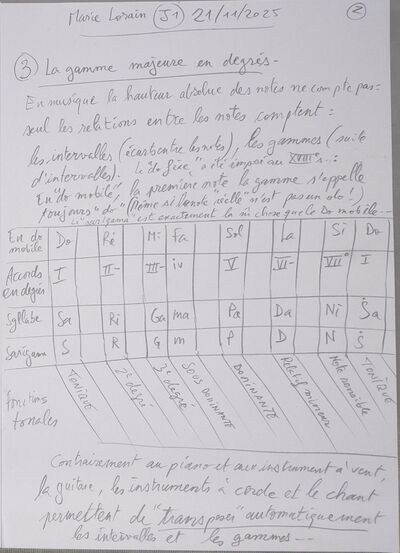 Marie Lorain (J1) 21/11/2025 (2)
(3) La gamme majeure en degrés -
En musique la hauteur absolue des notes ne compte pas =
seul les relations entre les notes comptent :
les intervalles (écart entre les notes), les gammes (suite
d'intervalles). Le "do fixe" a été imposé au XVIII°s. :
En "do mobile", la première note la gamme s'appelle
toujours "do" (Même si la note "réelle" n'est pas un do !)
Le "sarigama" est exactement la m̂ chose que le Do mobile ...
En do mobile | Do | Ré | Mi | Fa | Sol | La | Si | Do
Accords en degrés | I | II- | III- | iv | V | VI- | VII° | I
Syllabe | Sa | Ri | Ga | ma | Pa | Da | Ni | Ṡa
Sarigama | S | R | G | m | P | D | N | Ṡ
Fonctions tonales | TONIQUE | 2e degré | 3e degré | SOUS DOMINANTE | DOMINANTE | Relatif mineur | Note sensible | TONIQUE
Contrairement au piano et aux instrument à vent,
la guitare, les instruments à corde et le chant
permettent de "transposer" automatiquement
les intervalles et les gammes ---